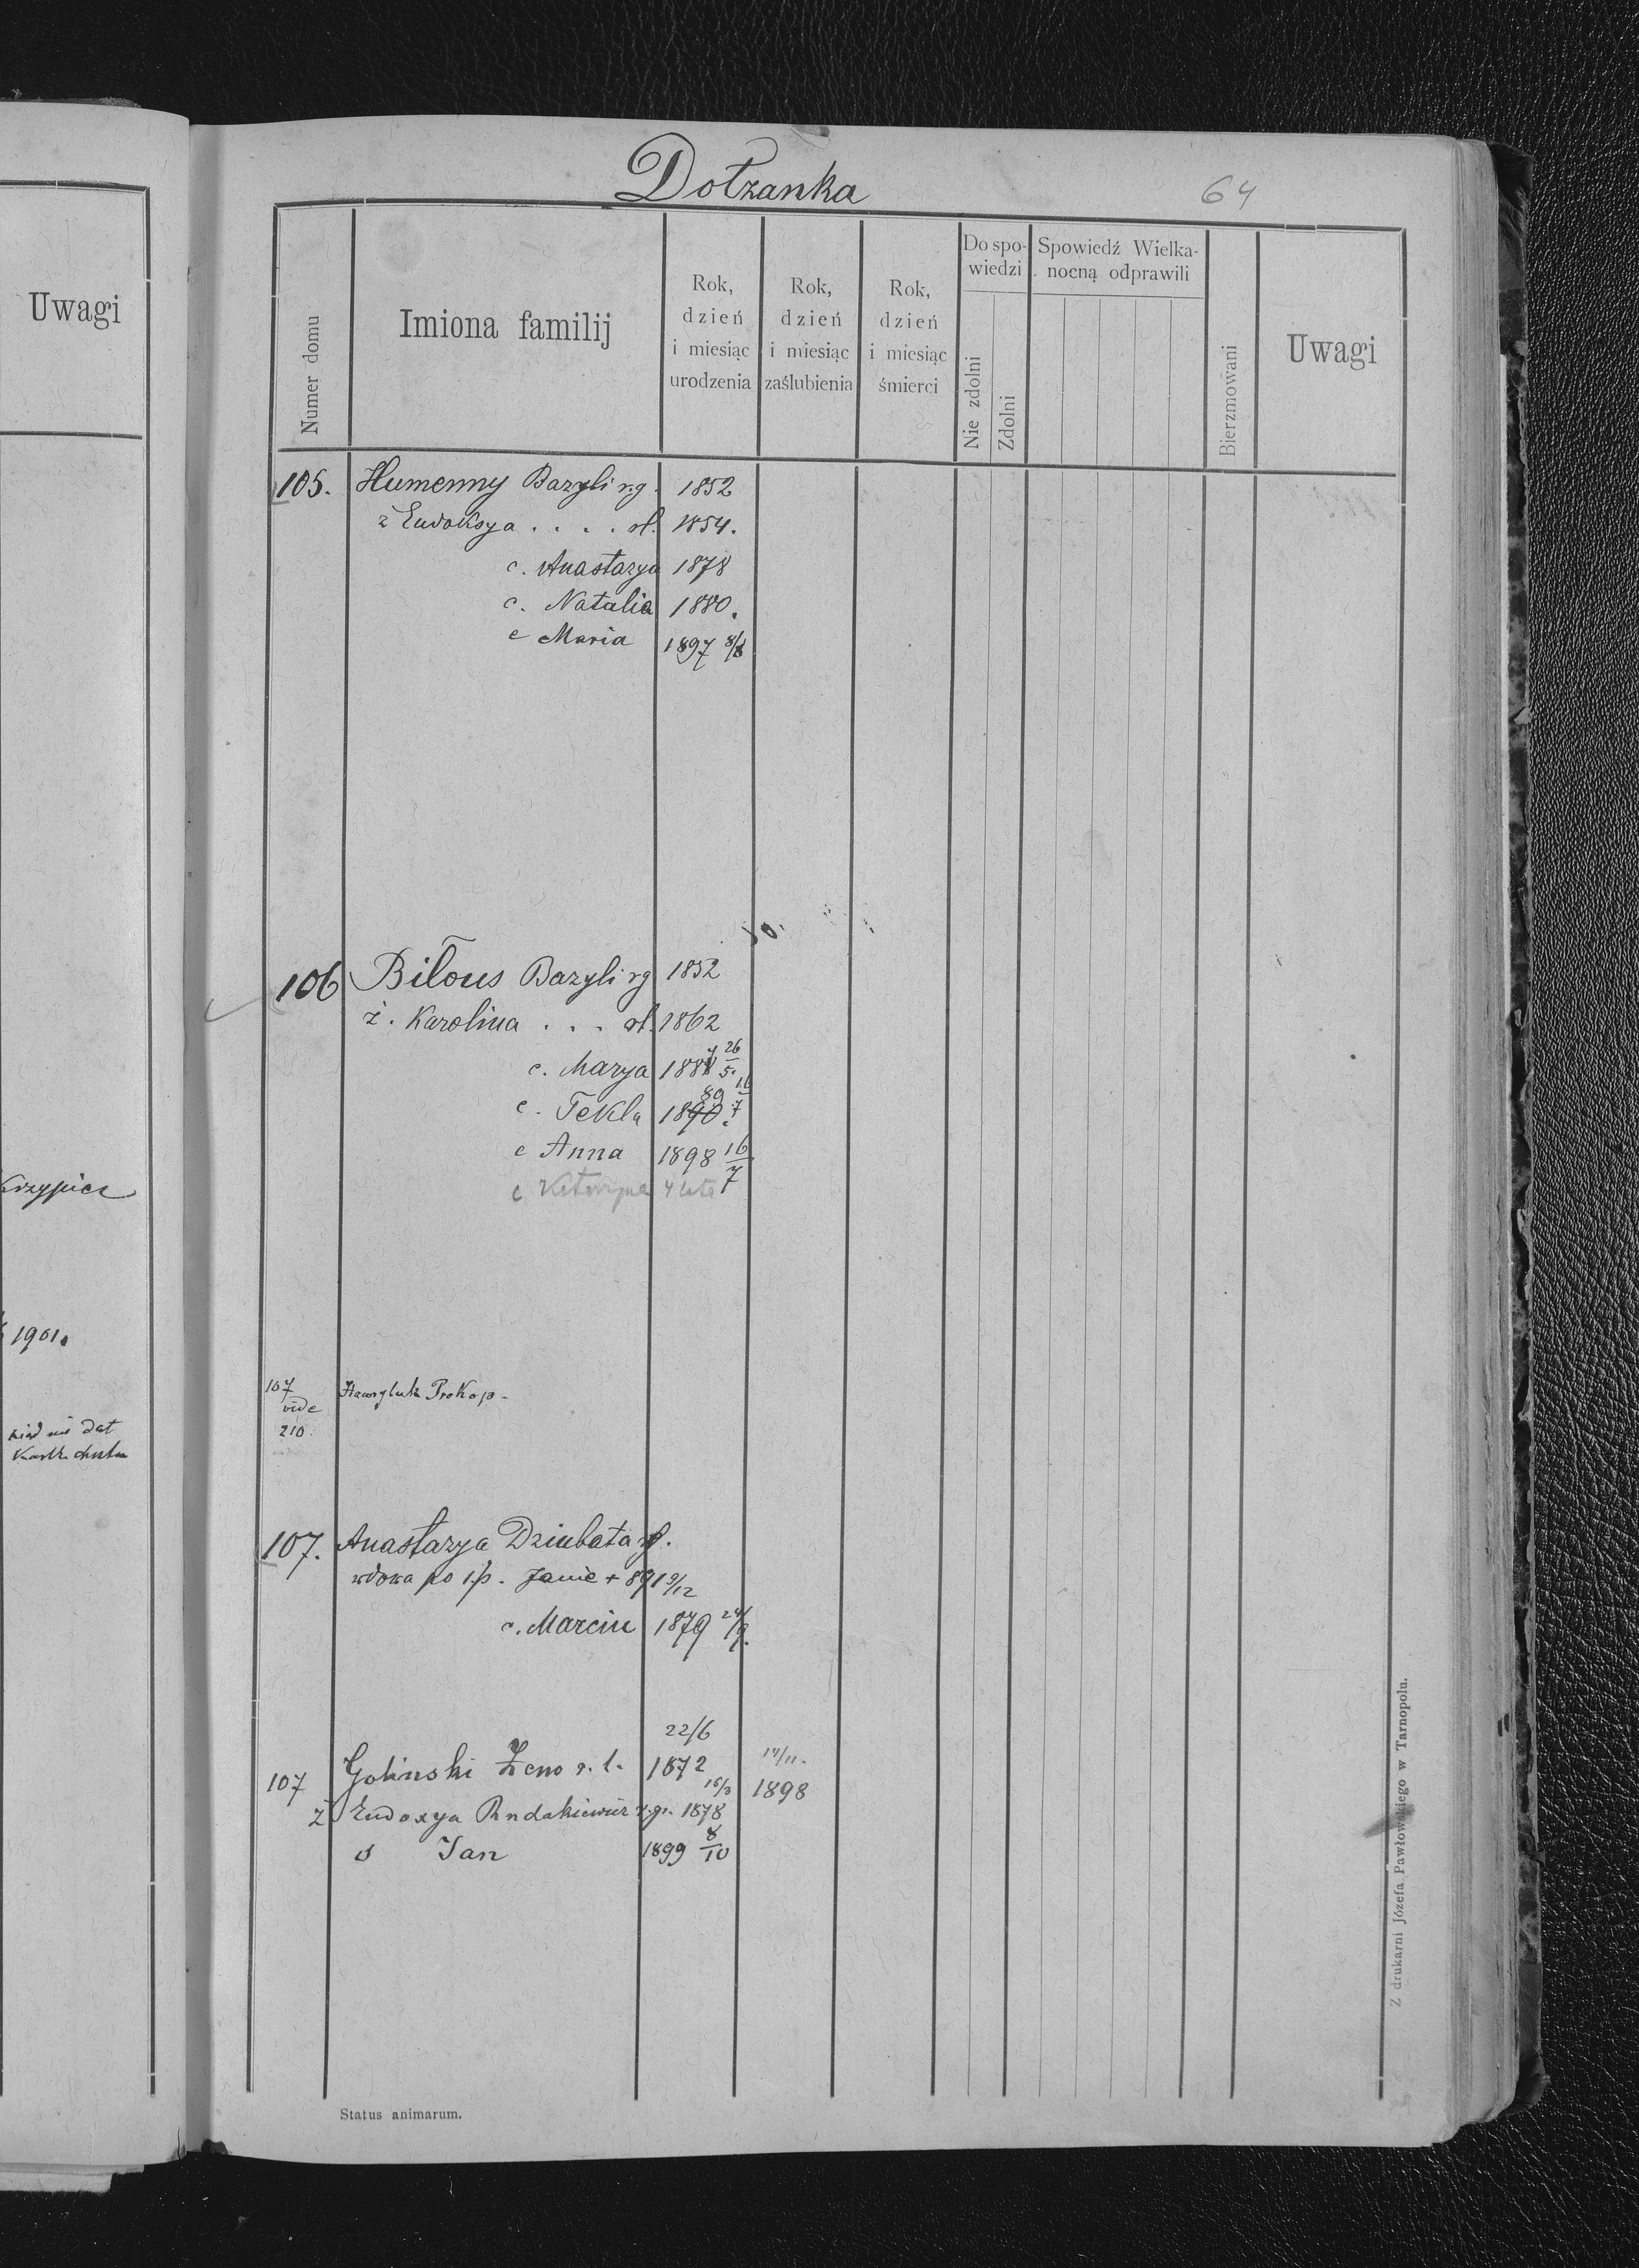 Dołzanka
64
Uwagi
Numer domu
Imiona familij
Rok, dzień i miesiąc urodzenia
Rok, dzień i miesiąc zaślubienia
Rok, dzień i miesiąc śmierci
Do spowiedzi
Nie zdolni
Zdolni
Spowiedź Wielkanocną odprawili
Bierzmowani
Uwagi
105. Humenny Bazyli rg. 1852
ż Eudoksya . . . . rł. 1854.
c. Anastazya 1878
c. Natalia 1880.
c Maria 1897 8/8
106 Biłous Bazyli rg 1852
ż. Karolina . . . rł. 1862
c. Marya 1887 26/5.
c. Tekla 1890 89 16/7
c Anna 1898 16/7
c 4 lata
1901.
107 vide 210. Hawryluk Prokop-
107. Anastazya Dziubata rł.
wdowa po ś.p. Janie + 891 9/12
c. Marcin 1879 24/9.
22/6
107 Goliński Zeno r. l. 1872 17/11. 1898
ż Eudoxya Rudakiewicz r.gr. 1878 15/3
s Jan 1899 8/10
Status animarum.
Z drukarni Józefa Pawłowskiego w Tarnopolu.